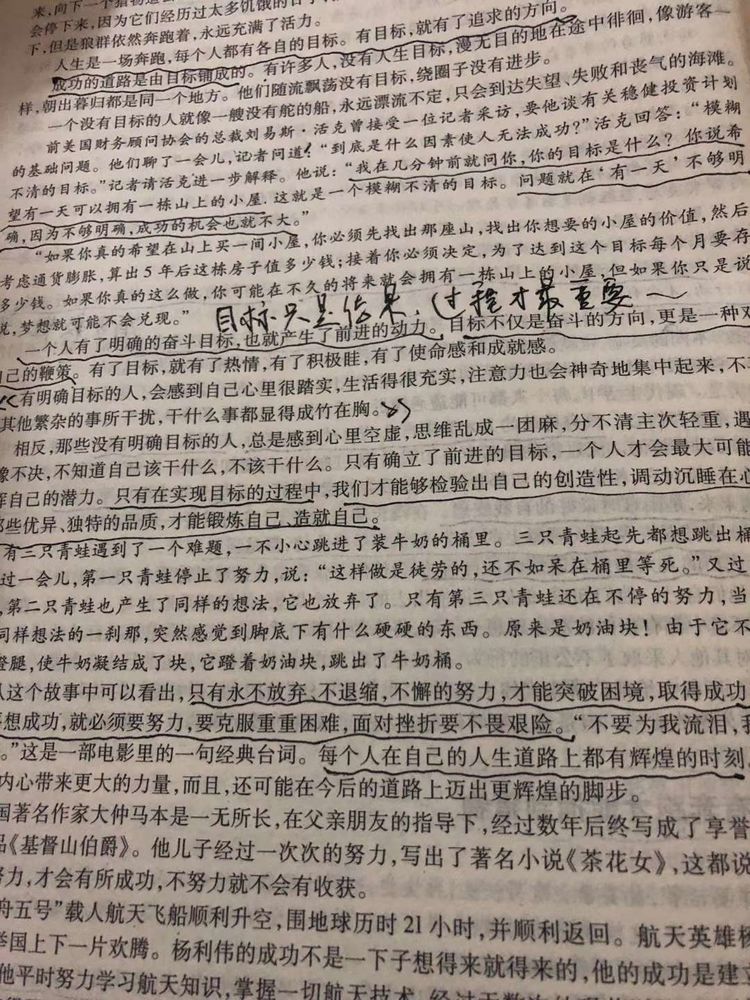 来,向下一个猎物追
会停下来,因为它们经历过太多饥饿的日
下,但是狼群依然奔跑着,永远充满了活力。
人生是一场奔跑,每个人都有各自的目标。有目标,就有了追求的方向。
成功的道路是由目标铺成的。有许多人,没有人生目标,漫无目的地在途中徘徊,像游客一
样,朝出暮归都是同一个地方。他们随流飘荡没有目标,绕圈子没有进步。
一个没有目标的人就像一艘没有舵的船,永远漂流不定,只会到达失望、失败和丧气的海滩。
前美国财务顾问协会的总裁刘易斯·活克曾接受一位记者采访,要他谈有关稳健投资计划
的基础问题。他们聊了一会儿,记者问道:“到底是什么因素使人无法成功?”活克回答:“模糊
不清的目标。”记者请活克进一步解释。他说:“我在几分钟前就问你,你的目标是什么?你说希
望有一天可以拥有一栋山上的小屋,这就是一个模糊不清的目标。问题就在‘有一天’不够明
确,因为不够明确,成功的机会也就不大。”
“如果你真的希望在山上买一间小屋,你必须先找出那座山,找出你想要的小屋的价值,然后
考虑通货膨胀,算出5年后这栋房子值多少钱;接着你必须决定,为了达到这个目标每个月要存
多少钱。如果你真的这么做,你可能在不久的将来就会拥有一栋山上的小屋,但如果你只是说
说,梦想就可能不会兑现。”
目标只是结果,过程才最重要~
一个人有了明确的奋斗目标,也就产生了前进的动力。目标不仅是奋斗的方向,更是一种对
自己的鞭策。有了目标,就有了热情,有了积极眭,有了使命感和成就感。
有明确目标的人,会感到自己心里很踏实,生活得很充实,注意力也会神奇地集中起来,不
其他繁杂的事所干扰,干什么事都显得成竹在胸。
相反,那些没有明确目标的人,总是感到心里空虚,思维乱成一团麻,分不清主次轻重,遇
豫不决,不知道自己该干什么,不该干什么。只有确立了前进的目标,一个人才会最大可能
挥自己的潜力。只有在实现目标的过程中,我们才能够检验出自己的创造性,调动沉睡在心
那些优异、独特的品质,才能锻炼自己、造就自己。
有三只青蛙遇到了一个难题,一不小心跳进了装牛奶的桶里。三只青蛙起先都想跳出桶
过一会儿,第一只青蛙停止了努力,说:“这样做是徒劳的,还不如呆在桶里等死。”又过
,第二只青蛙也产生了同样的想法,它也放弃了。只有第三只青蛙还在不停的努力,当
同样想法的一刹那,突然感觉到脚底下有什么硬硬的东西。原来是奶油块!由于它不
蹬腿,使牛奶凝结成了块,它蹬着奶油块,跳出了牛奶桶。
从这个故事中可以看出,只有永不放弃、不退缩,不懈的努力,才能突破困境,取得成功
要想成功,就必须要努力,要克服重重困难,面对挫折要不畏艰险。“不要为我流泪,我
。”这是一部电影里的一句经典台词。每个人在自己的人生道路上都有辉煌的时刻,
内心带来更大的力量,而且,还可能在今后的道路上迈出更辉煌的脚步。
国著名作家大仲马本是一无所长,在父亲朋友的指导下,经过数年后终写成了享誉
品《基督山伯爵》。他儿子经过一次次的努力,写出了著名小说《茶花女》,这都说
努力,才会有所成功,不努力就不会有收获。
舟五号”载人航天飞船顺利升空,围地球历时21小时,并顺利返回。航天英雄杨
举国上下一片欢腾。杨利伟的成功不是一下子想得来就得来的,他的成功是建立
他平时努力学习航天知识,掌握一切航天技术,经过无数次的